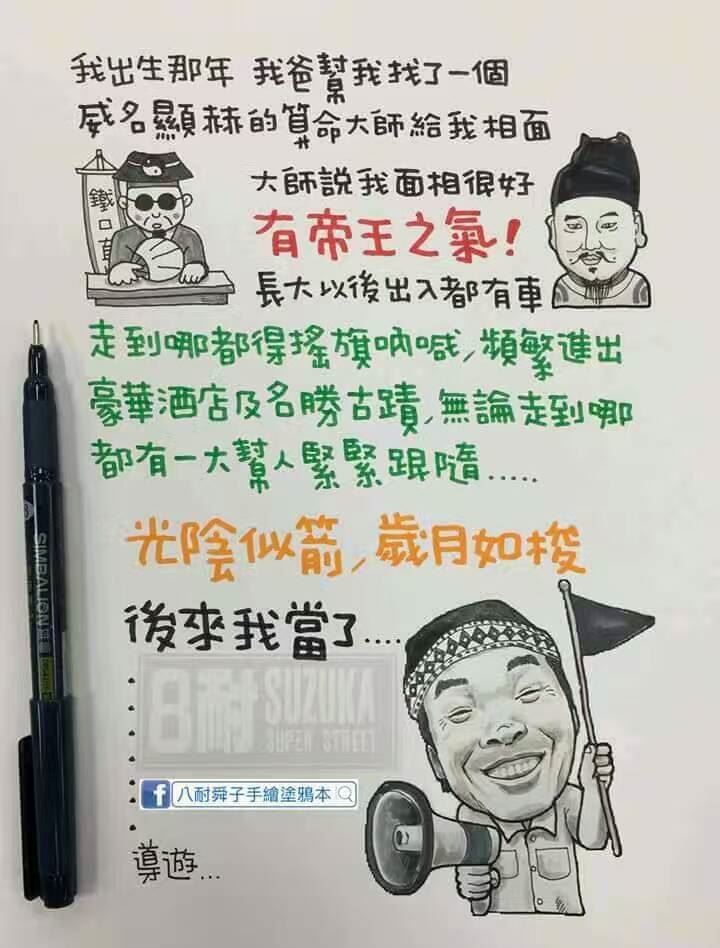 我出生那年 我爸幫我找了一個
威名顯赫的算命大師給我相面
鐵口直
大師說我面相很好
有帝王之氣!
長大以後出入都有車
走到哪都得搖旗吶喊,頻繁進出
豪華酒店及名勝古蹟,無論走到哪
都有一大幫人緊緊跟隨.....
光陰似箭,歲月如梭
後來我當了....
8耐 SUZUKA
SUPER STREET
f 八耐舜子手繪塗鴉本
導遊...
SIMBALION